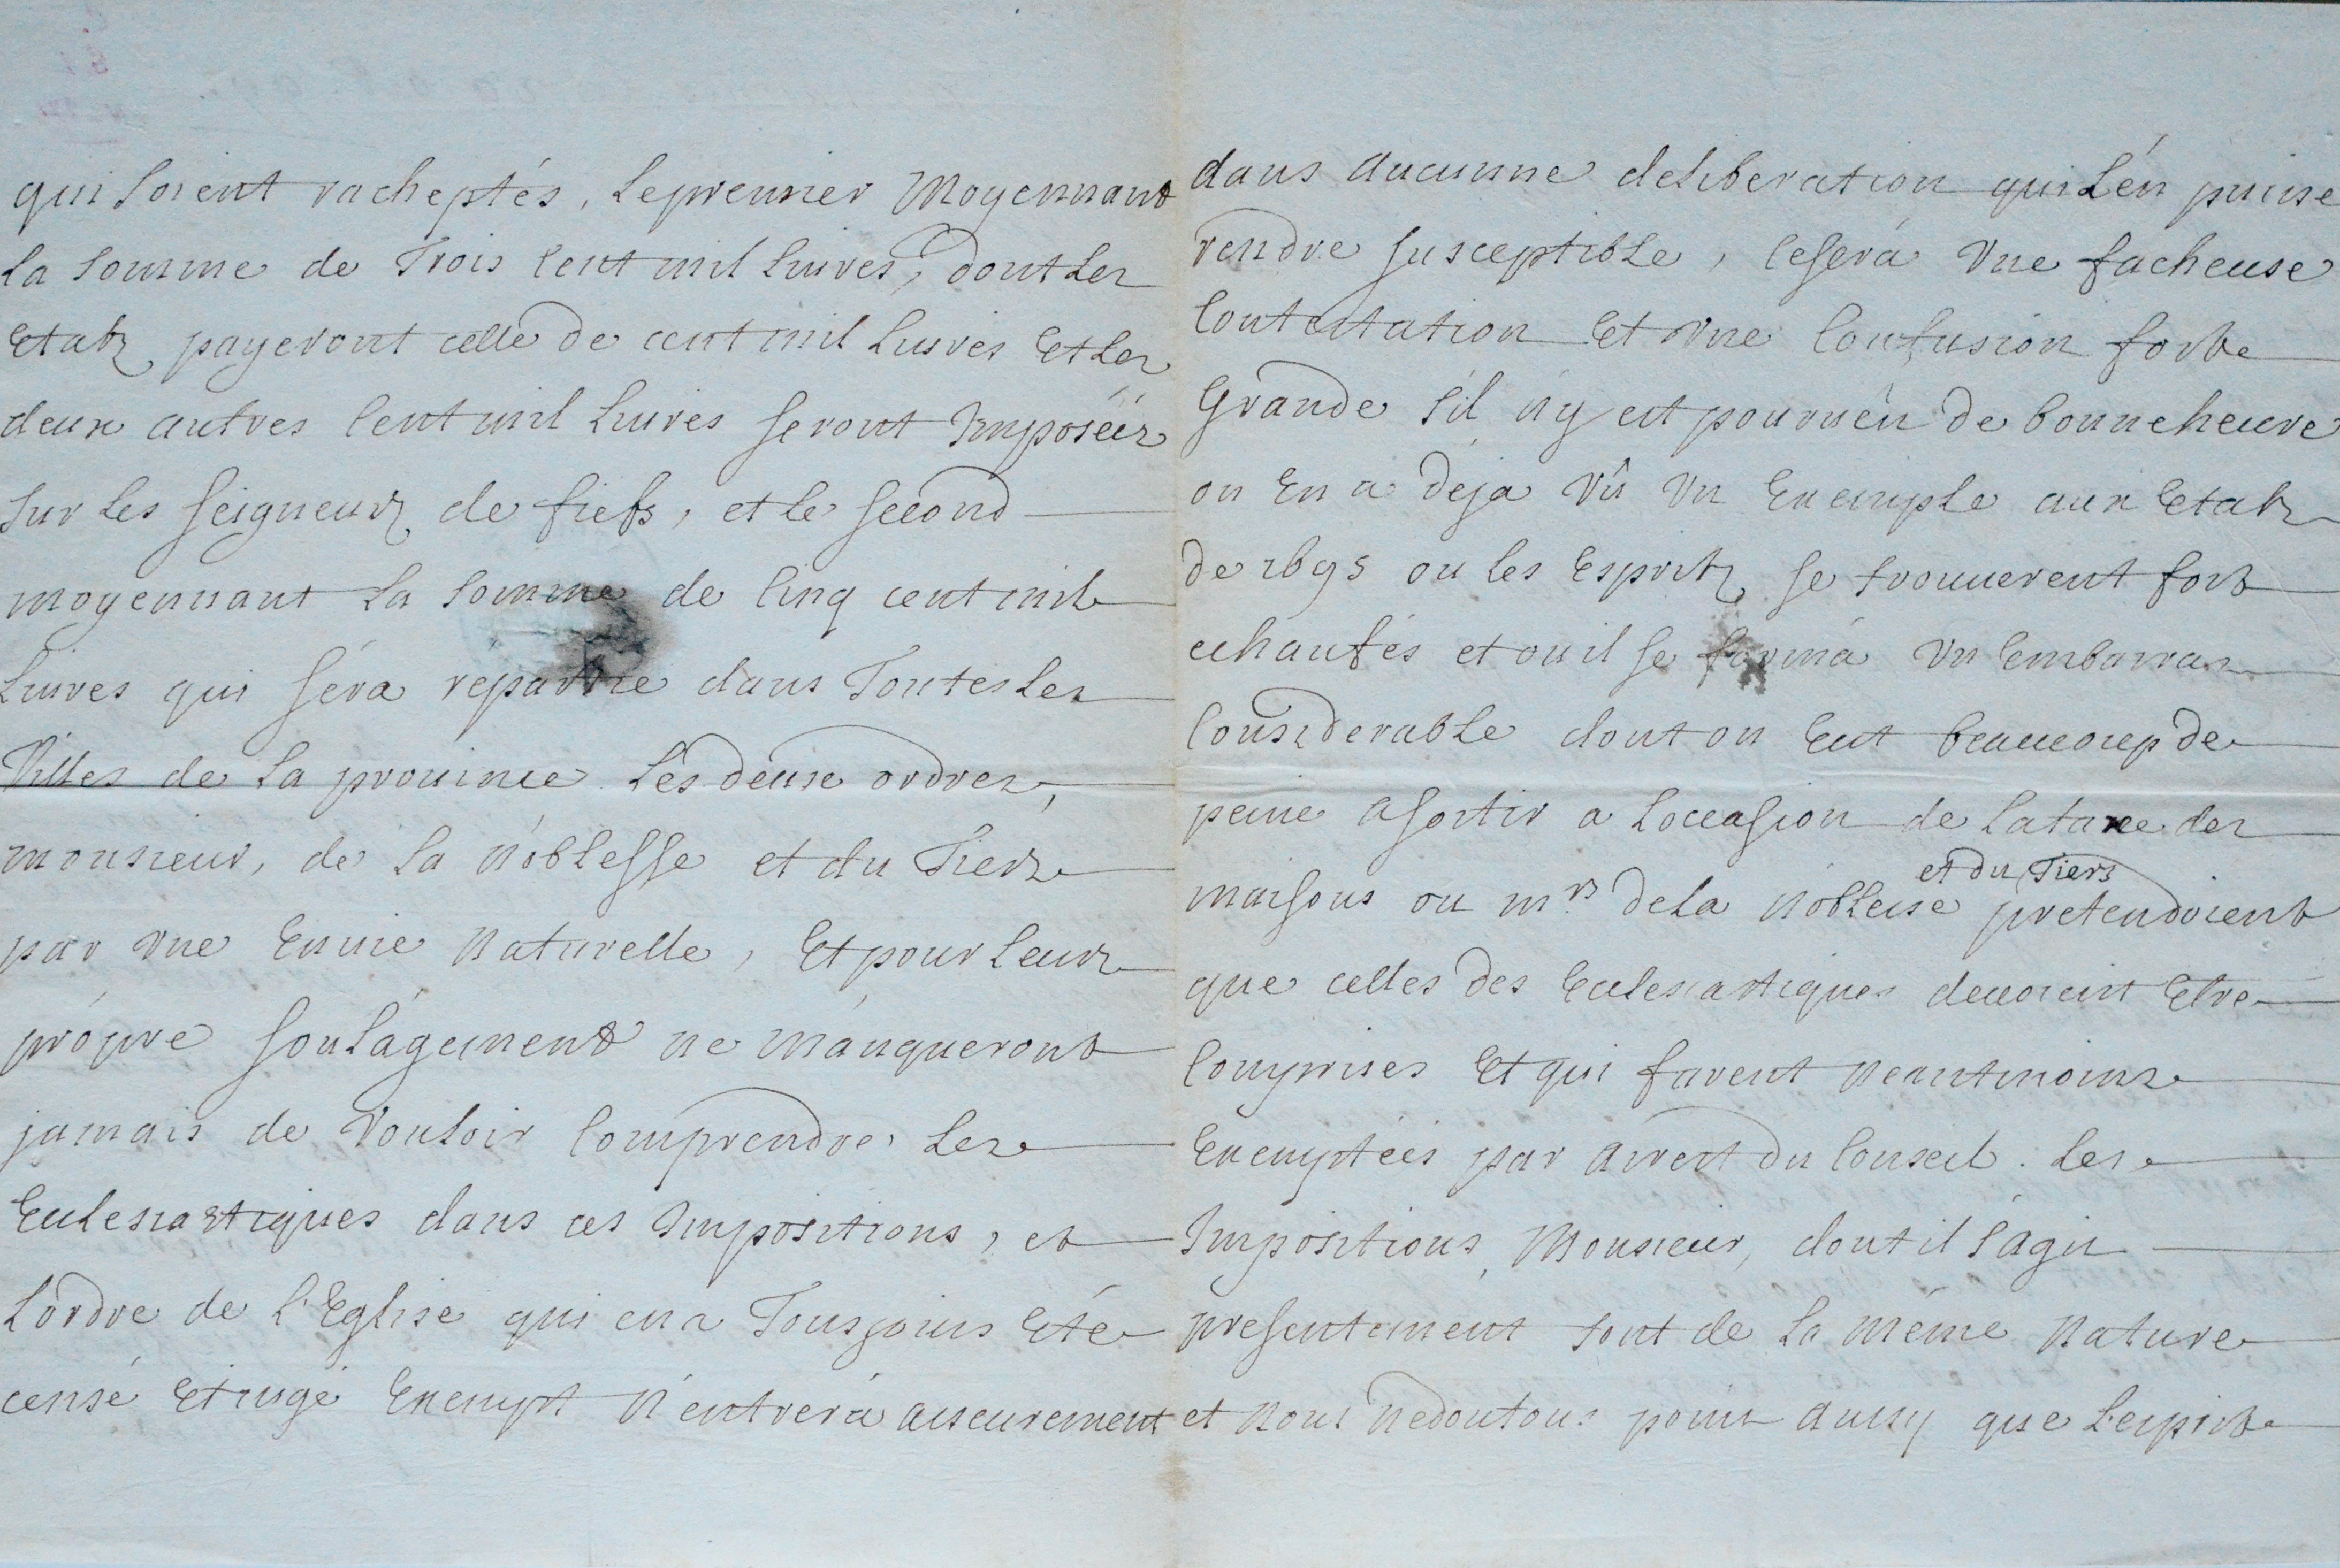 qui soient racheptés, le premier moyennant
la somme de Trois cent mil liures, dont les
Etatz payeront celle de cent mil liures et les
deux autres cent mil liures seront Imposéés
sur les seigneurs de fiefs, et le second
moyennant la somme de cinq cent mil
liures qui séra répartie dans Toutes les
Villes de la prouince. Les deuse ordres,
monsieur, de la nóblesse et du Tiers
par vne Enuie naturelle, Et pour leur
própre soulágement ne mánqueront
jamais de vouloir comprendre les
Eclesiastiques dans ces Impositions, et
Lordre de l'Eglise qui en a Tousjours Eté
censé Et jugé Exempt n'entrerá asseurement
dans aucunne deliberation qui L'én puisse
rendre susceptible, ce será vne facheuse
contestation Et vne confusion fort
Grande s'il n'y est pourueu de bonne heure
on En a deja vû vn Exemple aux Etatz
de 1695 ou les Esprits se trouuerent fort
echaufés et ou il se formá vn Embarras
considerable dont on Eut beaucoup de
peine a sortir a Loccasion de La taxe des
maisons ou mrs de La nóblesse et du Tiers pretendoient
que celles des Eclesiastiques deuoient Etre
comprises Et qui furent neantmoins
Exemptéés par arrest du conseil. Les
Impositions, Monsieur, dont il s'agit
presentement sont de la méme nature
et nous ne doutons point aussy que L'esprit